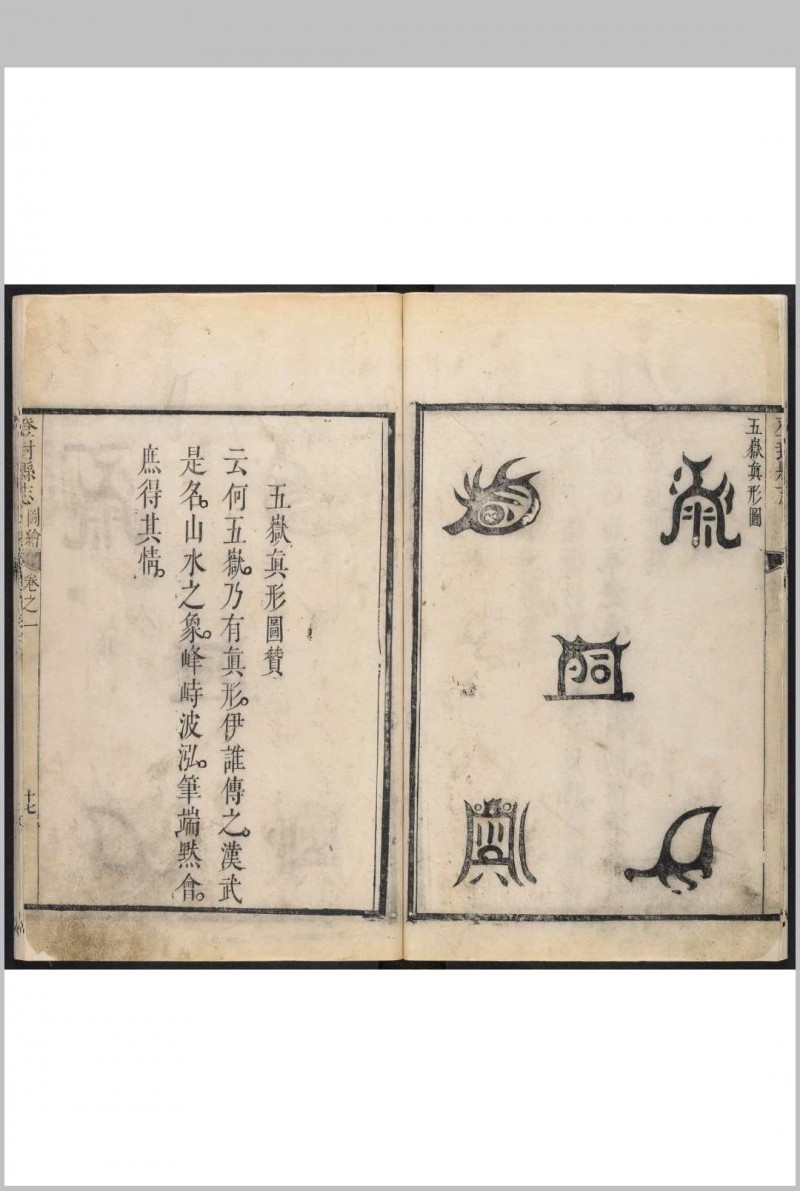 五嶽真形圖
五嶽真形圖贊
云何五嶽乃有真形。伊誰傳之。漢武
是名。山水之象。峰峙波泓。筆端黙會。
庶得其情。
登封縣志
圖繪
卷之一
十七